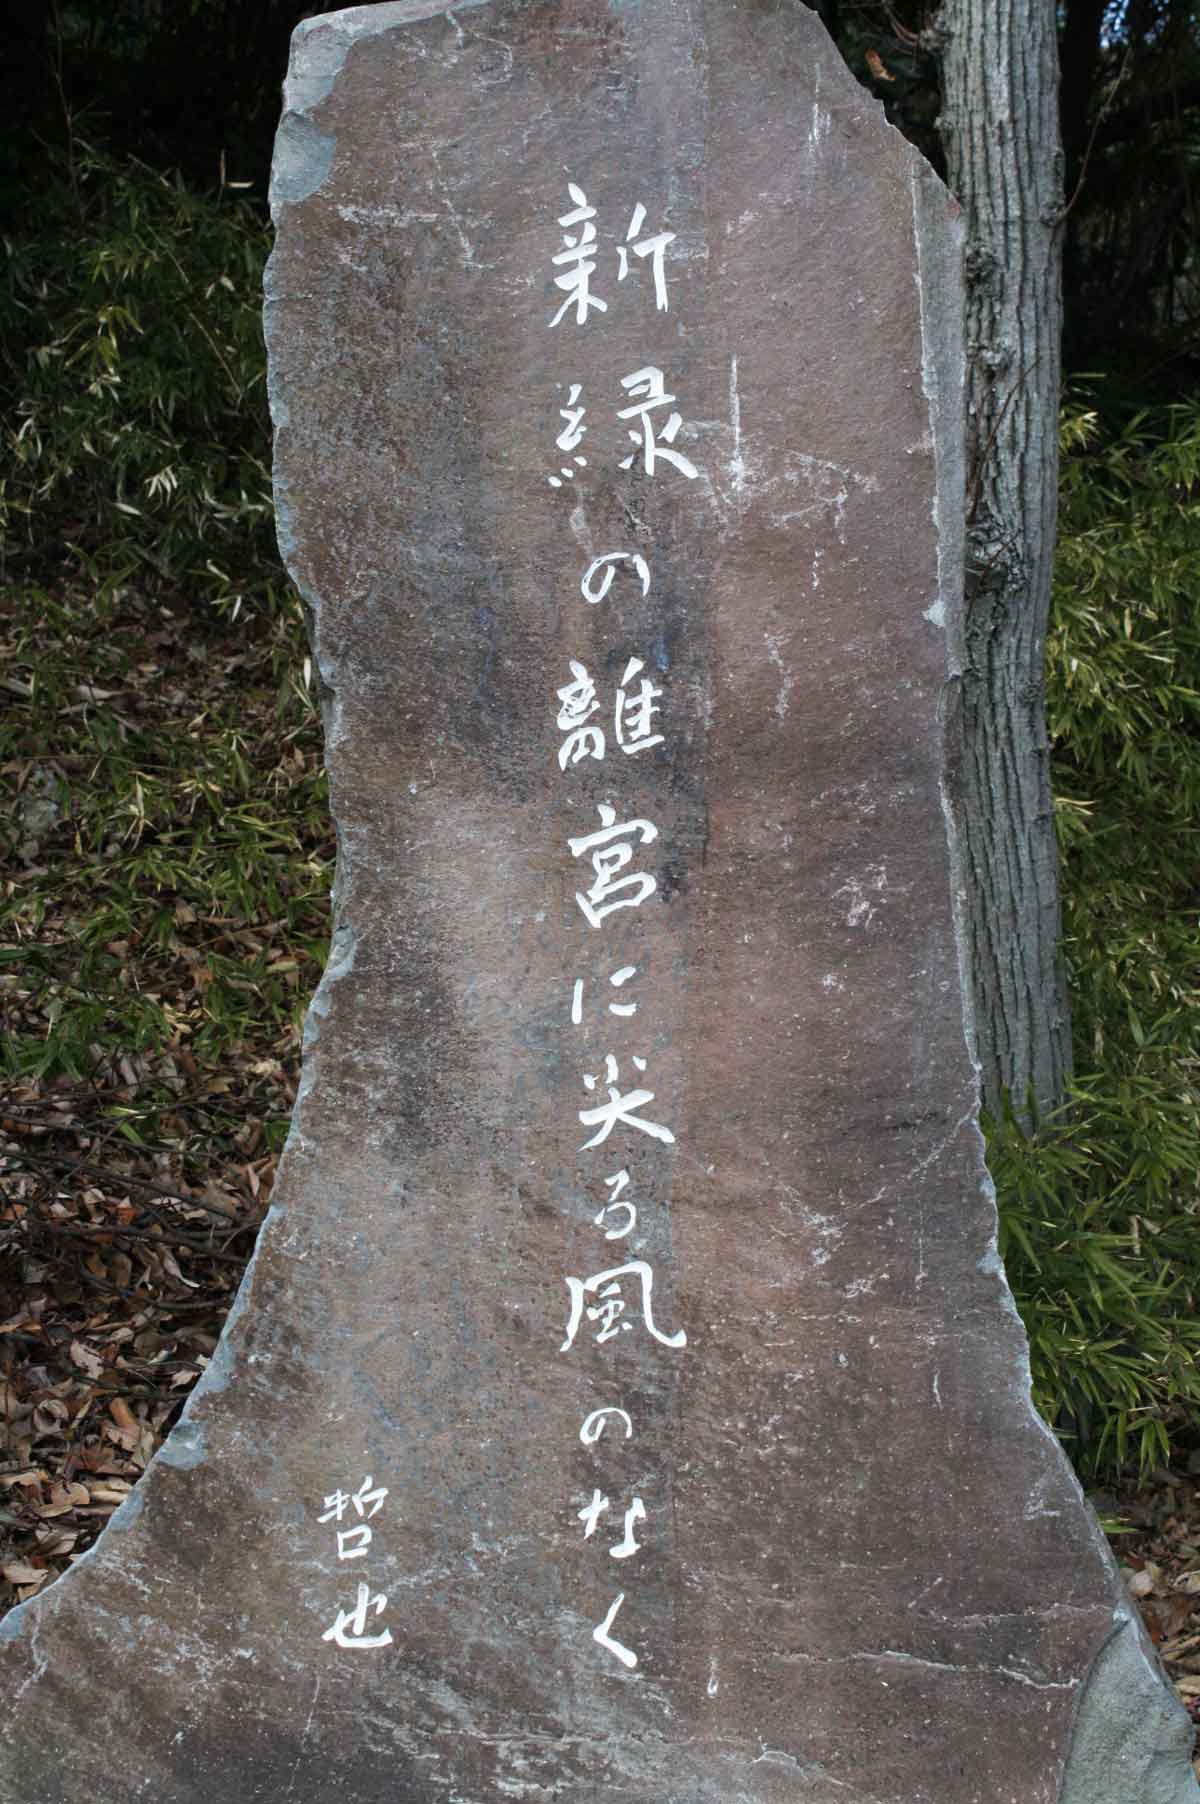 新緑の離宮に尖る風のなく
哲也